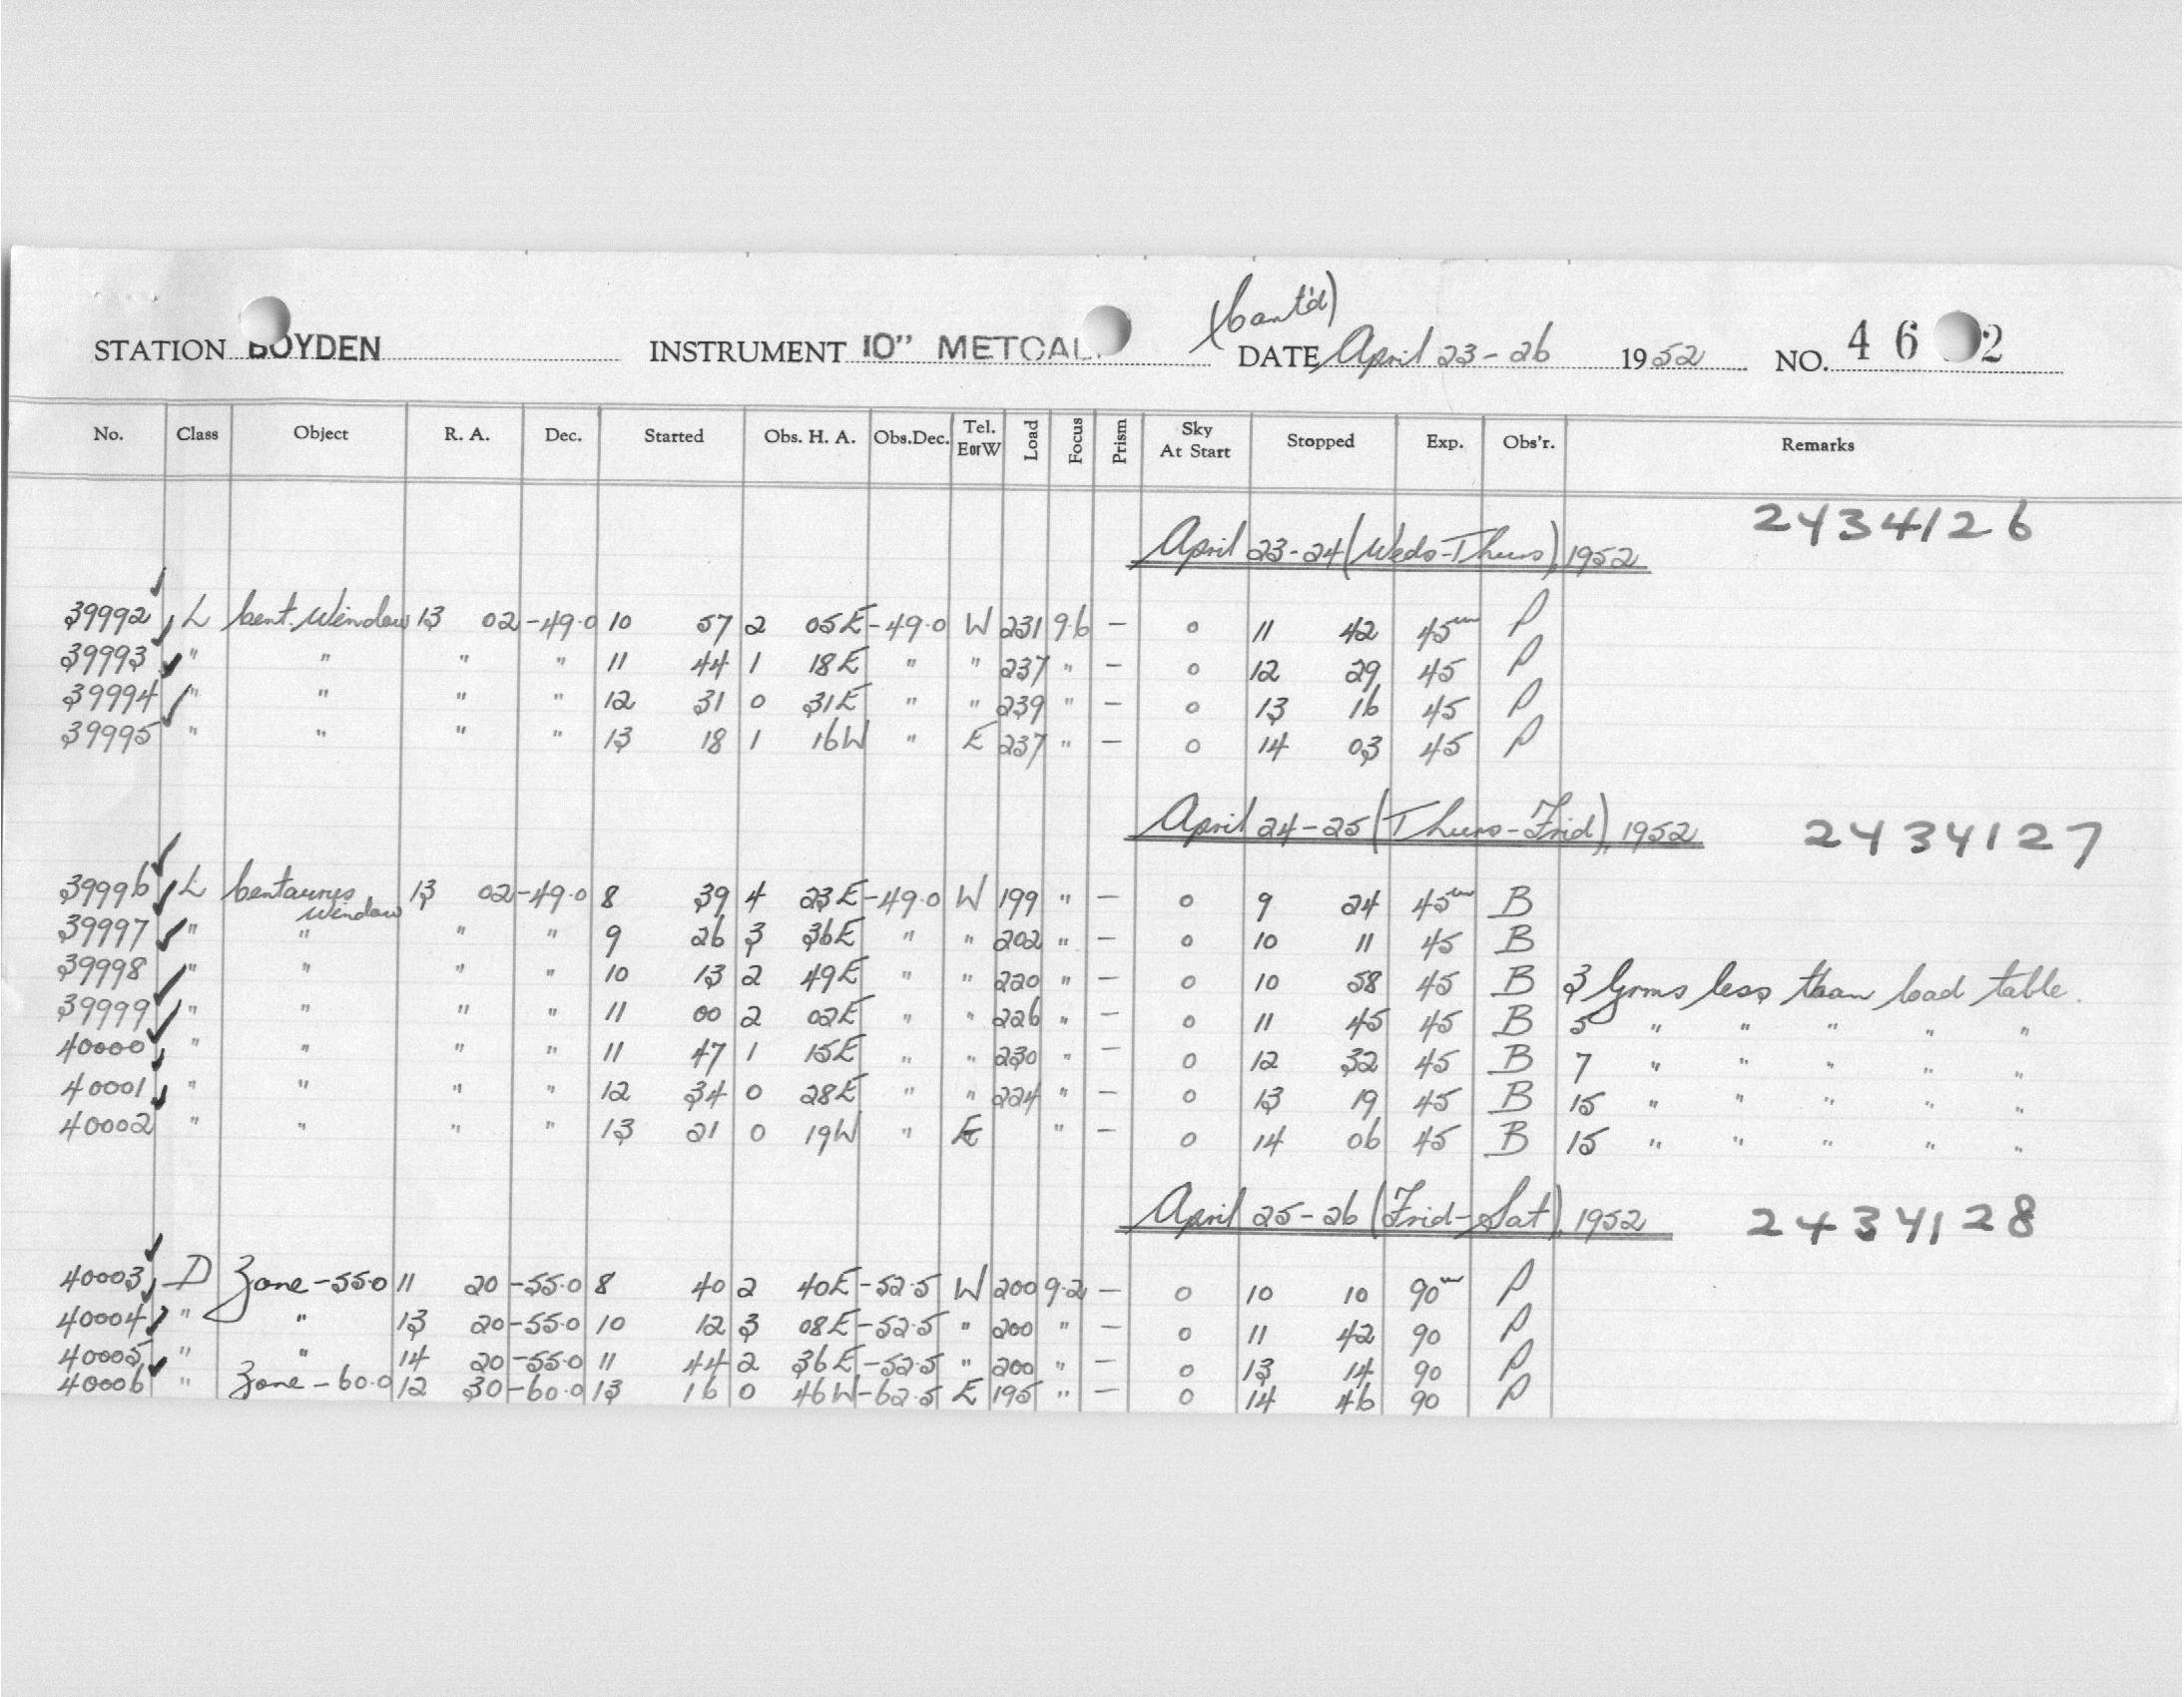 (Cont'd)
STATION BOYDEN INSTRUMENT 10" METCAL DATE April 23-26 1952 NO. 46 2
No. Class Object R. A. Dec. Started Obs. H. A. Obs.Dec. Tel. EorW Load Focus Prism Sky At Start Stopped Exp. Obs'r. Remarks
2434126
April 23-24 (Weds-Thurs), 1952
39992 L Cent. Window 13 02 -49.0 10 57 2 05E -49.0 W 231 9.6 - 0 11 42 45m P
39993 " " " " 11 44 1 18E " " 237 " - 0 12 29 45 P
39994 " " " " 12 31 0 31E " " 239 " - 0 13 16 45 P
39995 " " " " 13 18 1 16W " E 237 " - 0 14 03 45 P
April 24-25 (Thurs-Frid), 1952 2434127
39996 L Centaurus Window 13 02 -49.0 8 39 4 23E -49.0 W 199 " - 0 9 24 45m B
39997 " " " " 9 26 3 36E " " 202 " - 0 10 11 45 B
39998 " " " " 10 13 2 49E " " 220 " - 0 10 58 45 B 3 Grms less than load table.
39999 " " " " 11 00 2 02E " " 226 " - 0 11 45 45 B 5 " " " " "
40000 " " " " 11 47 1 15E " " 230 " - 0 12 32 45 B 7 " " " " "
40001 " " " " 12 34 0 28E " " 224 " - 0 13 19 45 B 15 " " " " "
40002 " " " " 13 21 0 19W " E " - 0 14 06 45 B 15 " " " " "
April 25-26 (Frid-Sat), 1952 2434128
40003 D Zone -55.0 11 20 -55.0 8 40 2 40E -52.5 W 200 9.2 - 0 10 10 90m P
40004 " " 13 20 -55.0 10 12 3 08E -52.5 " 200 " - 0 11 42 90 P
40005 " " 14 20 -55.0 11 44 2 36E -52.5 " 200 " - 0 13 14 90 P
40006 " Zone -60.0 12 30 -60.0 13 16 0 46W -62.5 E 195 " - 0 14 46 90 P